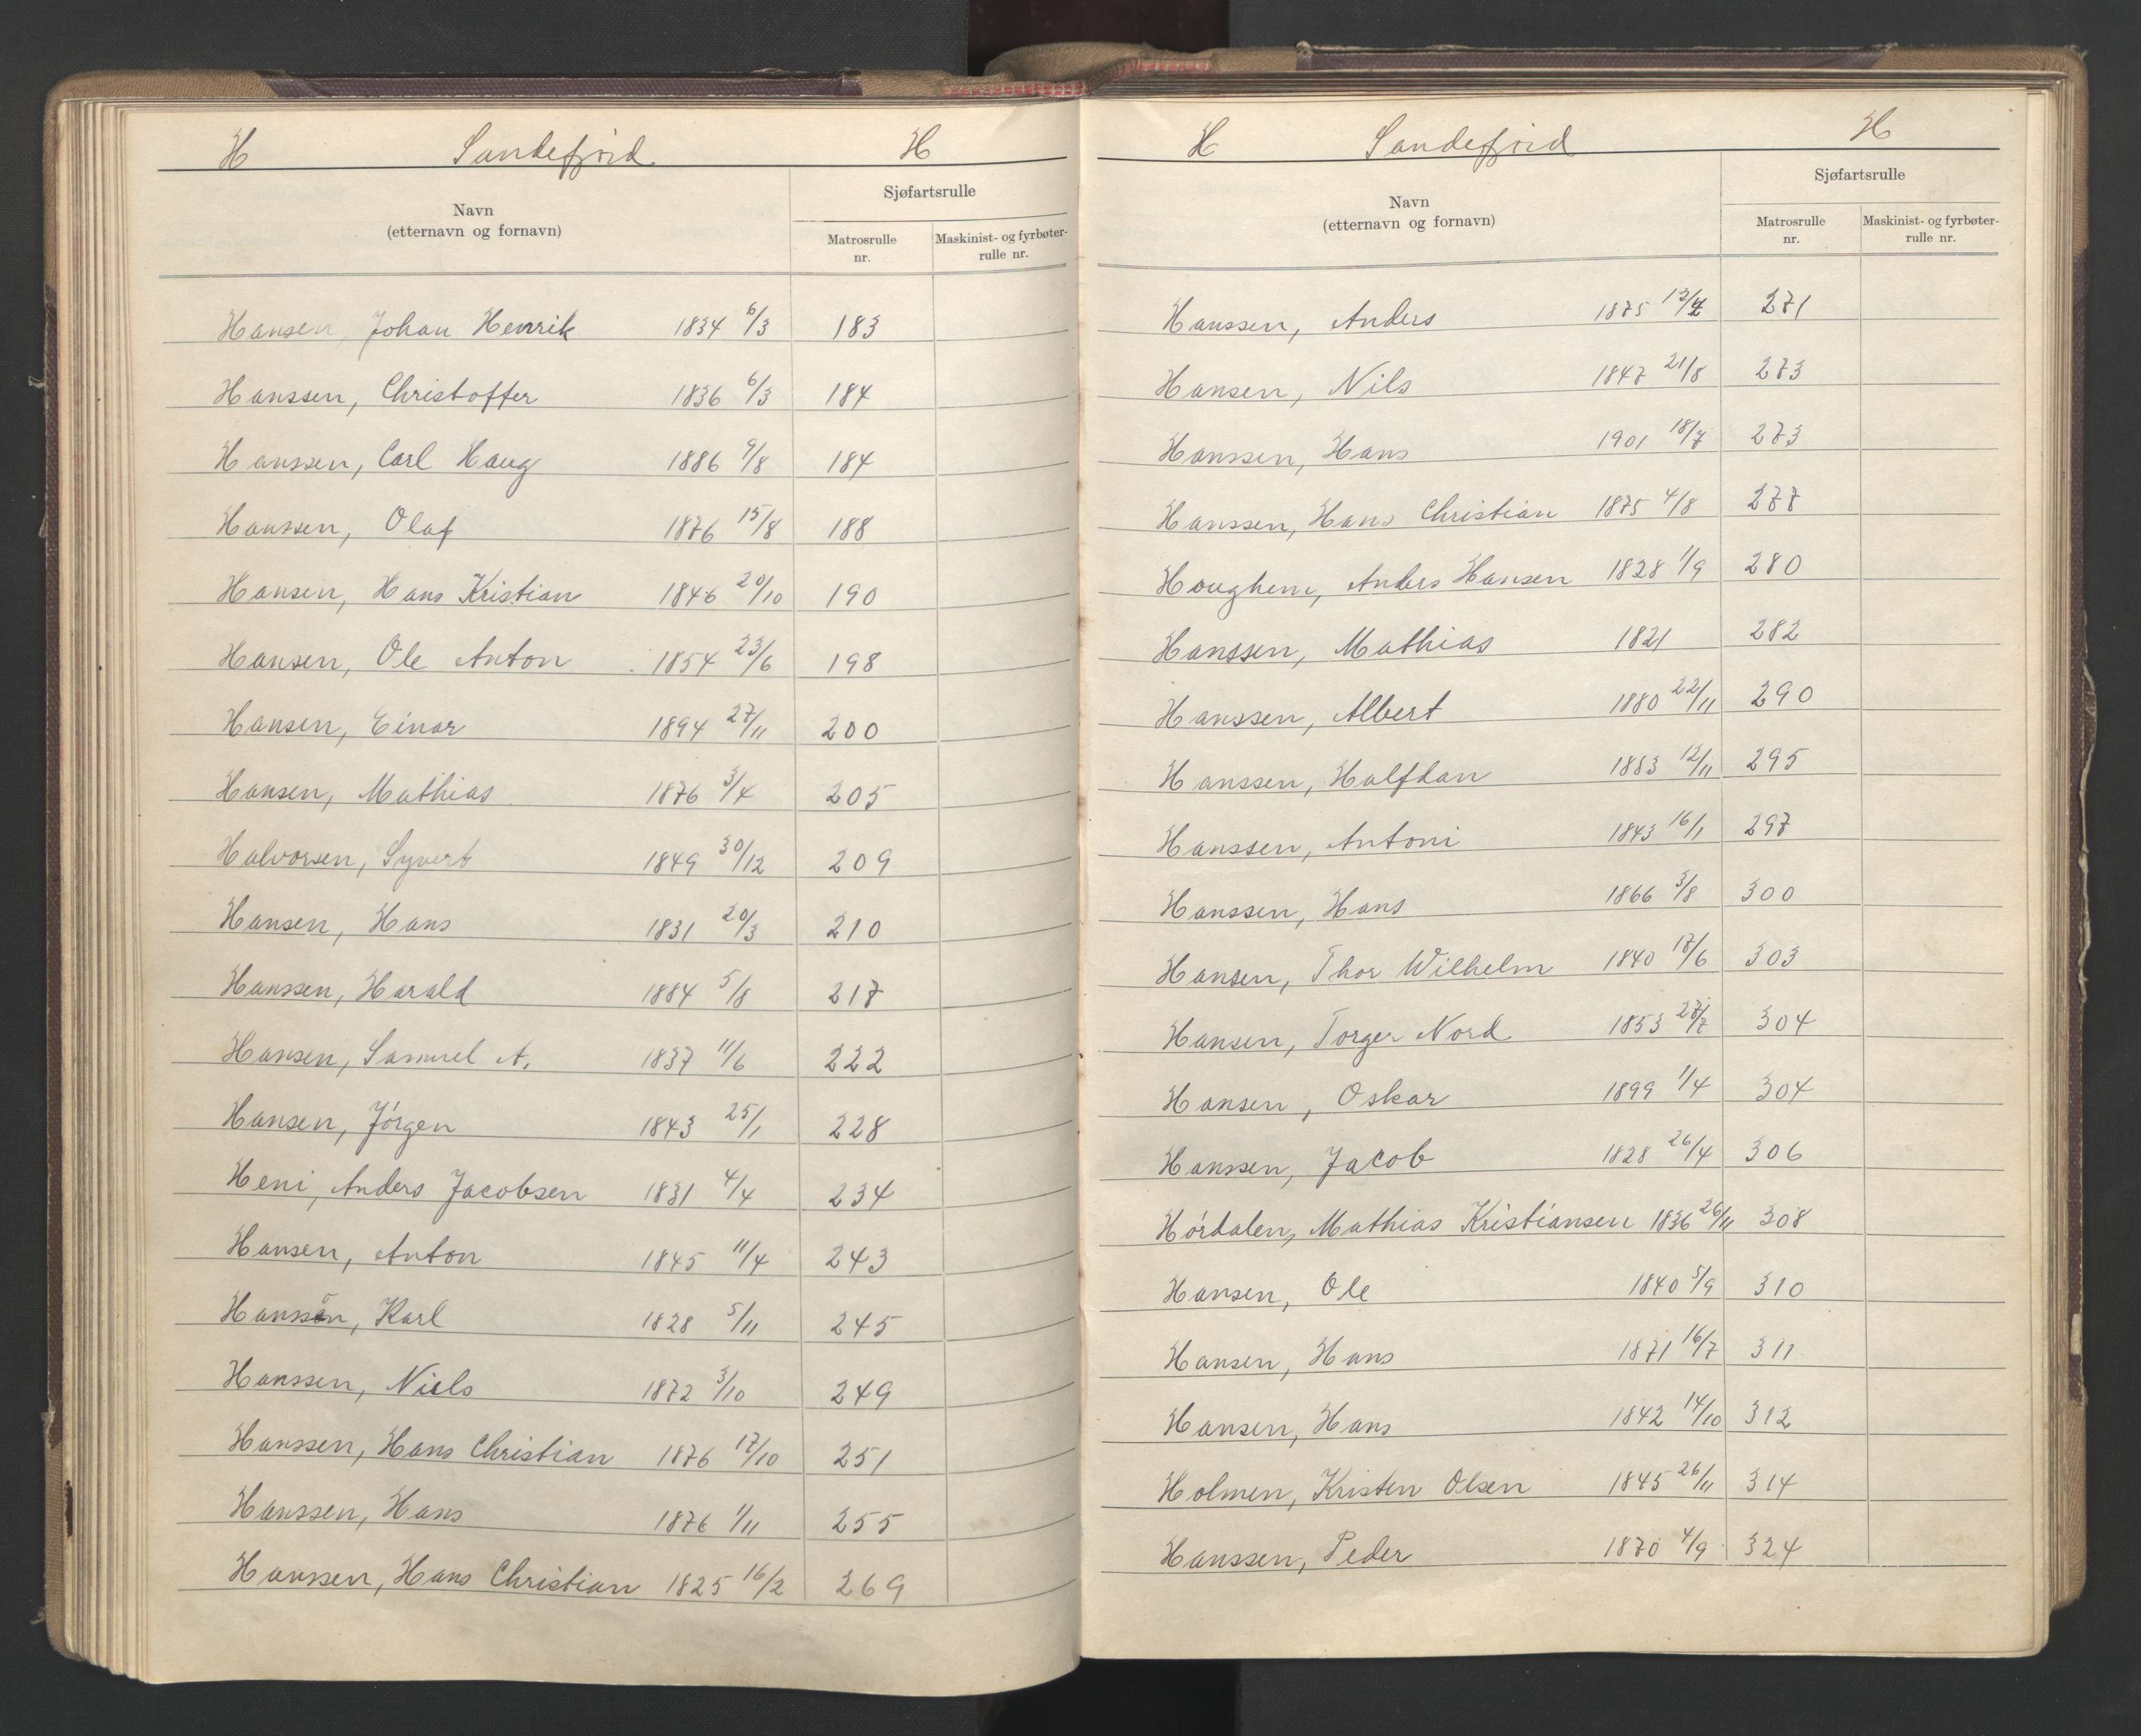 H Sandefjord H
Sjøfartsrulle
Navn
(etternavn og fornavn)
Matrosrulle
nr.
Maskinist- og fyrbøter-
rulle nr.
Hansen, Johan Henrik 1834 6/3 183
Hanssen, Christoffer 1836 6/3 184
Hanssen, Carl Haug 1886 9/8 184
Hanssen, Olaf 1876 15/8 188
Hansen, Hans Kristian 1846 20/10 190
Hansen, Ole Anton 1854 23/6 198
Hansen, Einar 1894 27/11 200
Hansen, Mathias 1876 3/4 205
Halvorsen, Syvert 1849 30/12 209
Hansen, Hans 1831 20/3 210
Hanssen, Harald 1884 5/8 217
Hansen, Samuel A. 1837 11/6 222
Hansen, Jörgen 1843 25/1 228
Heni, Anders Jacobsen 1831 4/4 234
Hansen, Anton 1845 11/4 243
Hanssen, Karl 1828 5/11 245
Hanssen, Niels 1872 3/10 249
Hanssen, Hans Christian 1876 17/10 251
Hanssen, Hans 1876 1/11 255
Hanssen, Hans Christian 1825 16/2 269
H Sandefjord H
Sjøfartsrulle
Navn
(etternavn og fornavn)
Matrosrulle
nr.
Maskinist- og fyrbøter-
rulle nr.
Hanssen, Anders 1875 271
Hansen, Nils 1847 21/8 273
Hanssen, Hans 1901 18/7 273
Hanssen, Hans Christian 1875 4/8 277
Houghem, Anders Hansen 1828 1/9 280
Hanssen, Mathias 1821 282
Hanssen, Albert 1880 22/11 290
Hanssen, Halfdan 1883 12/11 295
Hanssen, Antoni 1843 16/1 297
Hanssen, Hans 1866 3/8 300
Hansen, Thor Wilhelm 1840 17/6 303
Hansen, Torger Nord 1853 28/7 304
Hansen, Oskar 1899 1/4 304
Hanssen, Jacob 1828 26/4 306
Hórdalen, Mathias Kristiansen 1836 26/11 308
Hansen, Ole 1840 5/9 310
Hansen, Hans 1871 16/7 311
Hansen, Hans 1842 14/10 312
Holmen, Kristen Olsen 1845 26/11 314
Hanssen, Peder 1870 4/9 324